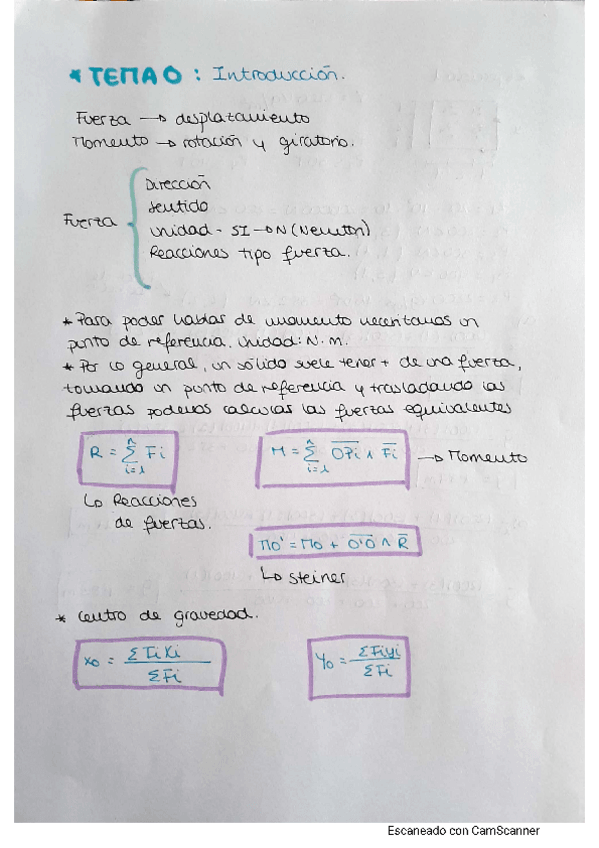 * TEMA 0 : Introducción.
Fuerza → desplazamiento
Momento → rotación y giratorio.
Fuerza {
Dirección
Sentido
Unidad - SI → N (Newton)
Reacciones tipo fuerza.
* Para poder hablar de momento necesitamos un
punto de referencia. Unidad: N·m.
* Por lo general, un sólido suele tener + de una fuerza,
tomando un punto de referencia y trasladando las
fuerzas podemos calcular las fuerzas equivalentes
R = Σ(i=1, n) F̄i
M = Σ(i=1, n) OPi ∧ F̄i → Momento
↳ Reacciones
de fuerzas.
Mo' = Mo + O'O ∧ R̄
↳ Steiner
* Centro de gravedad.
xo = ΣFixi / ΣFi
yo = ΣFiyi / ΣFi
Escaneado con CamScanner